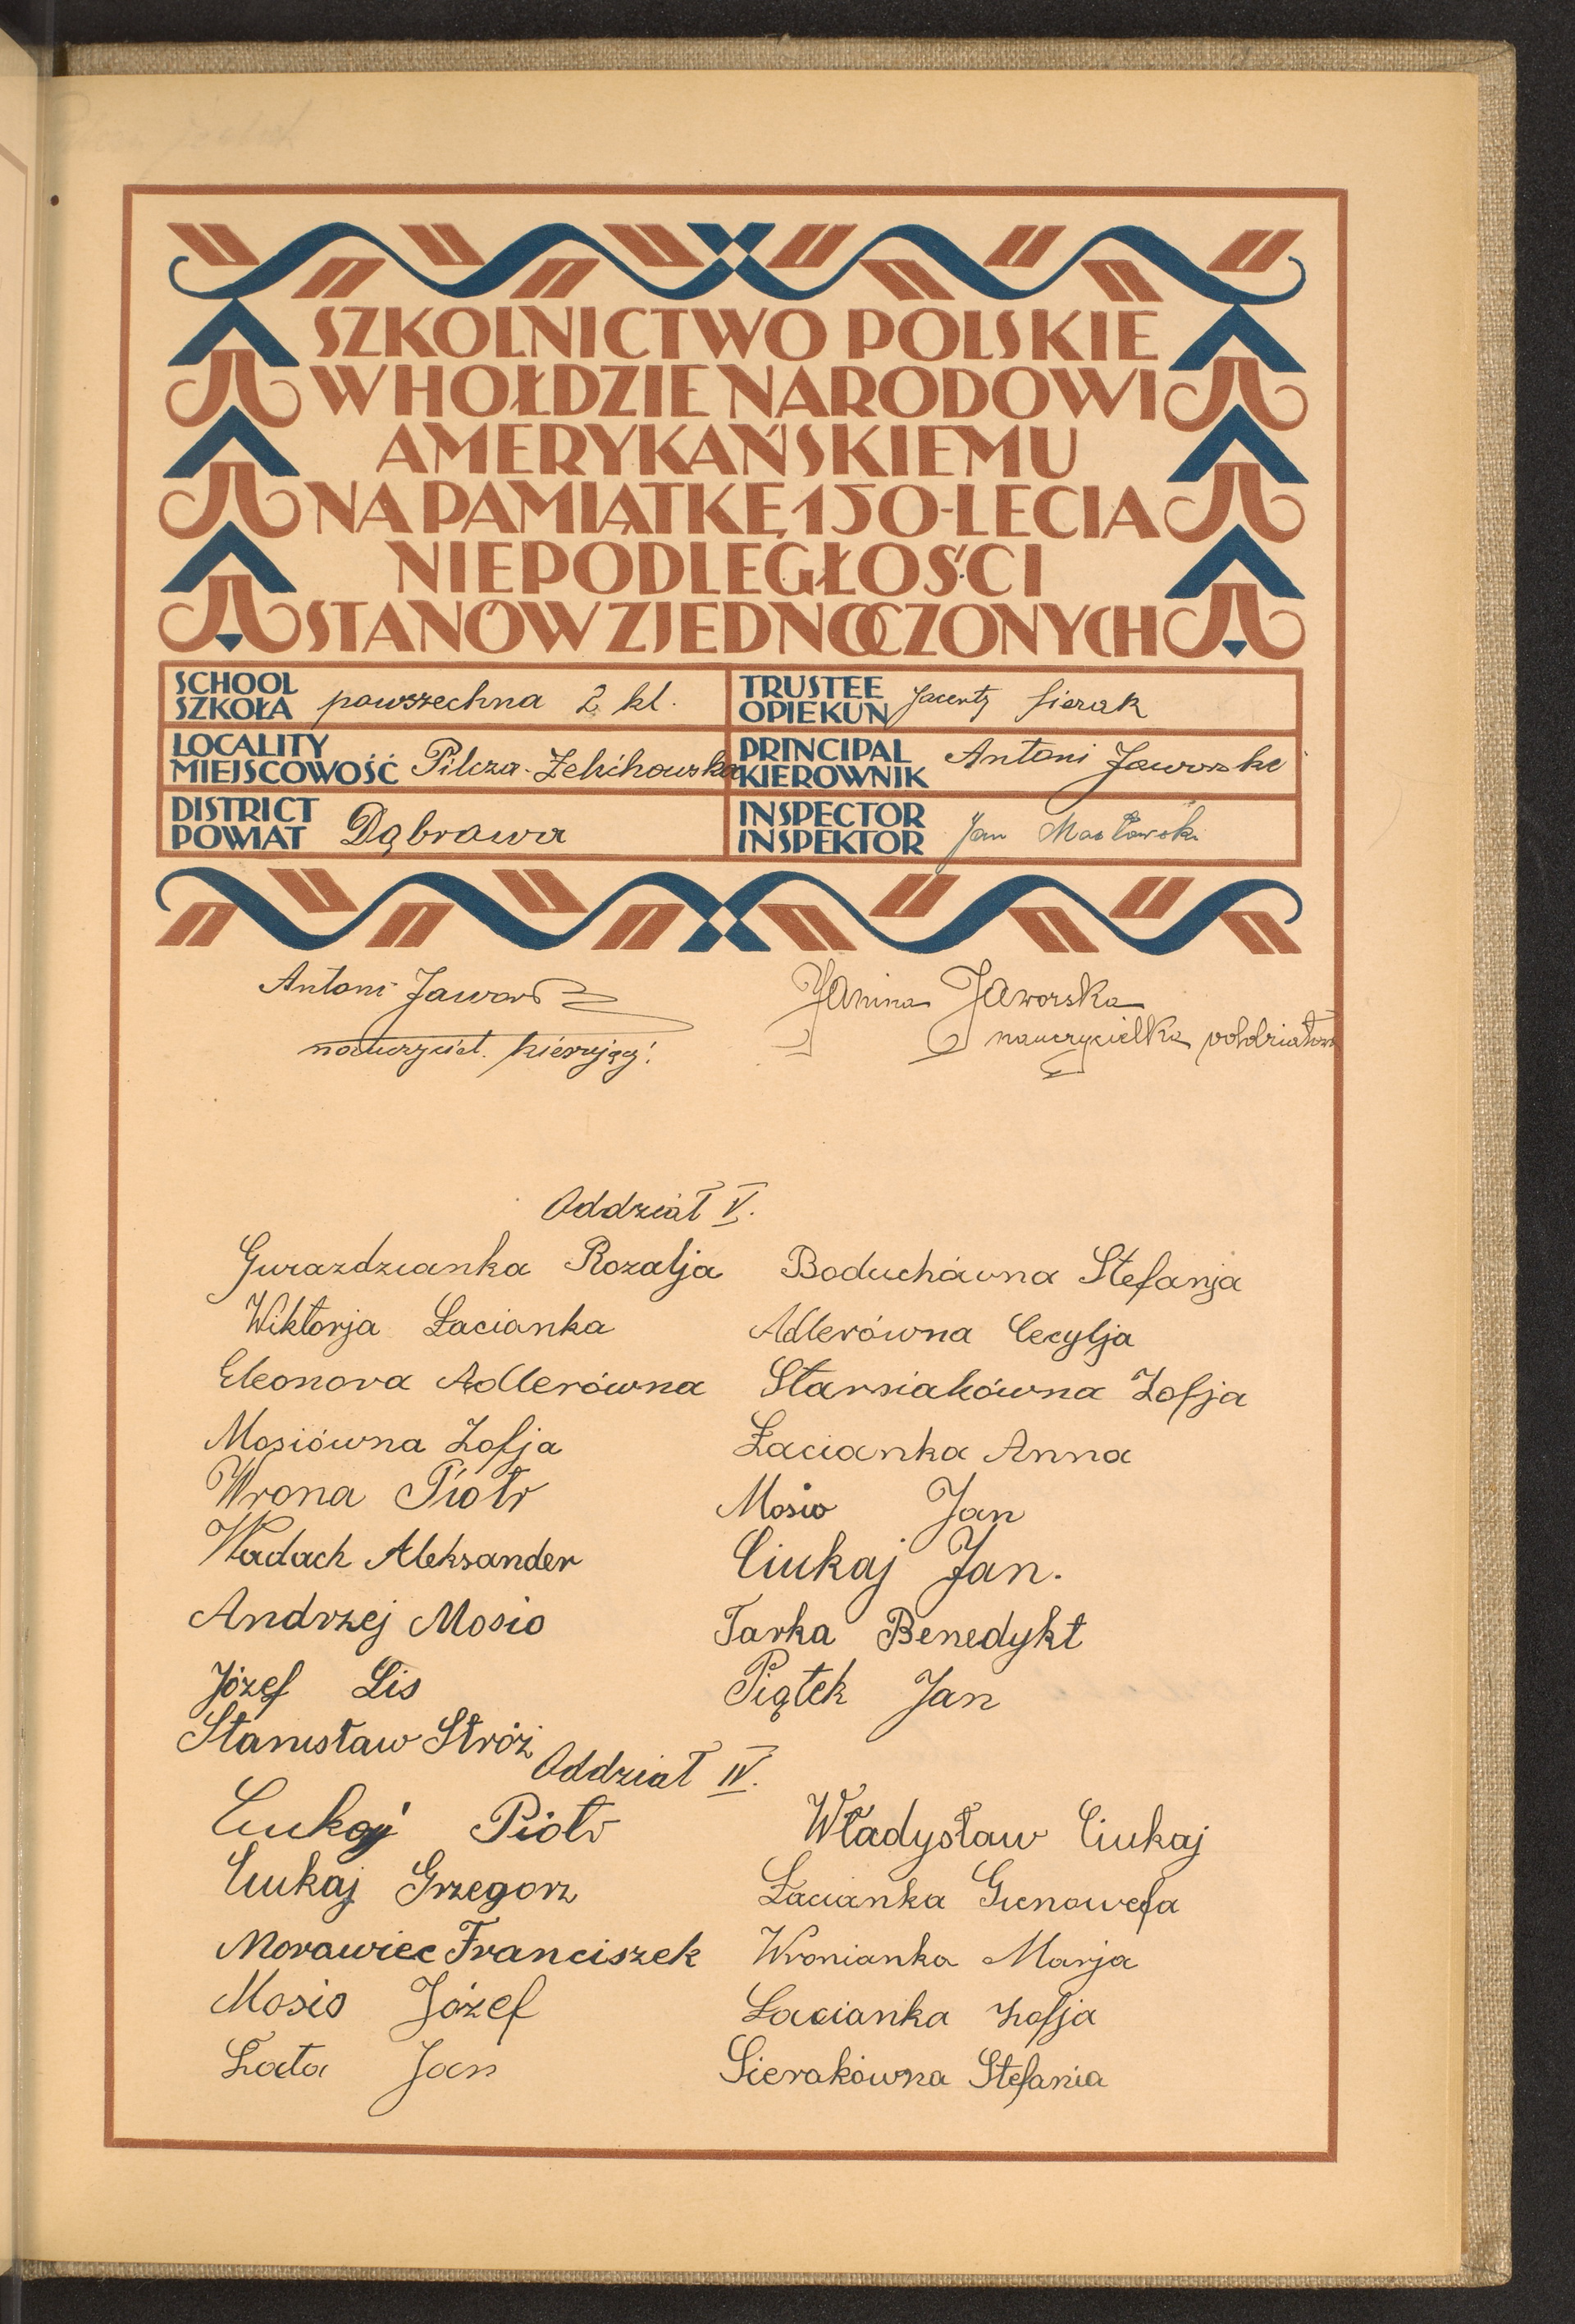 SZKOLNICTWO POLSKIE
W HOŁDZIE NARODOWI
AMERYKAŃSKIEMU
NA PAMIĄTKĘ 150-LECIA
NIEPODLEGŁOŚCI
STANÓW ZJEDNOCZONYCH
SCHOOL
SZKOŁA powszechna 2 kl.
TRUSTEE
OPIEKUN Jacenty Sierak
LOCALITY
MIEJSCOWOŚĆ Pilcza-Żelichowska
PRINCIPAL
KIEROWNIK Antoni Jaworski
DISTRICT
POWIAT Dąbrowa
INSPECTOR
INSPEKTOR Jan Masławski
Antoni Jawors
nauczyciel kierujący.
Janina Jaworska
nauczycielka
Oddział V.
Gwazdzianka Rozalja
Boduchówna Stefanja
Wiktorja Łacianka
Adlerówna Cecylja
Eleonora Adlerówna
Starsiakówna Zofja
Mosiówna Zofja
Łacianka Anna
Wrona Piotr
Mosio Jan
Wadach Aleksander
Ciukaj Jan.
Andrzej Mosio
Tarka Benedykt
Józef Lis
Piątek Jan
Stanisław Stróż
Oddział IV.
Ciukaj Piotr
Władysław Ciukaj
Ciukaj Grzegorz
Łacianka Gienowefa
Morawiec Franciszek
Wronianka Marja
Mosio Józef
Łacianka Zofja
Łata Jan
Sierakówna Stefania